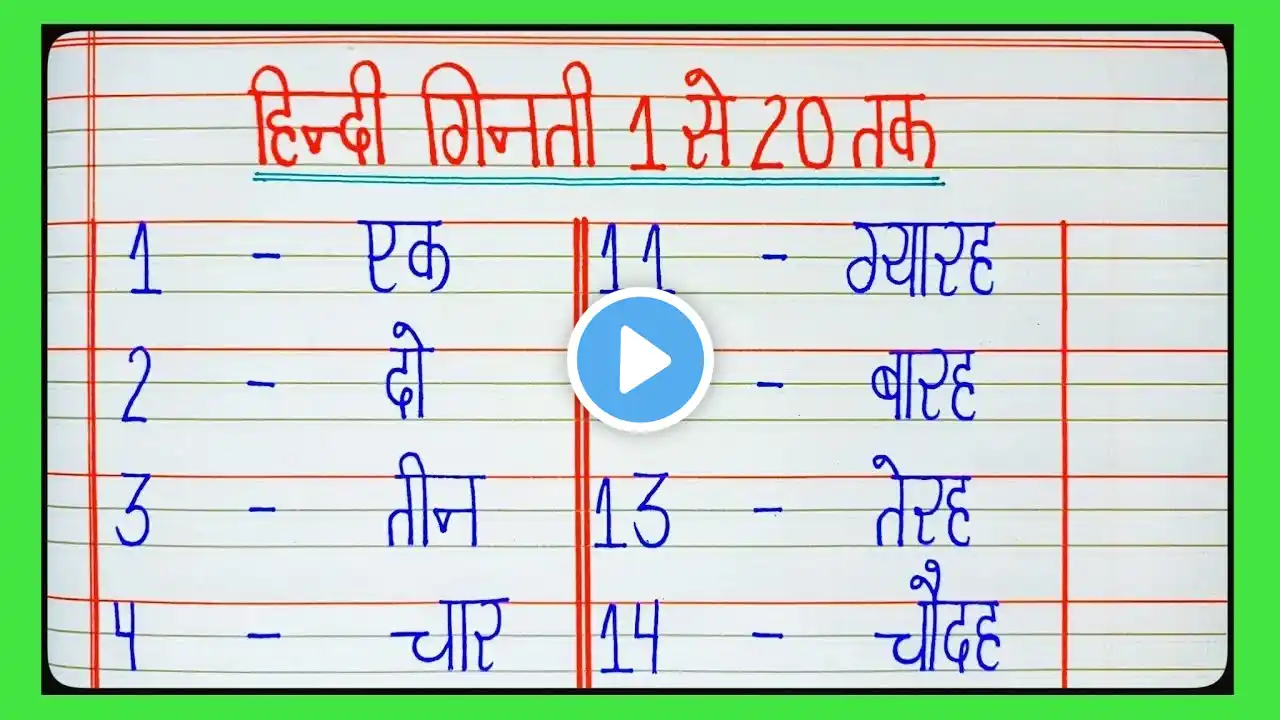 हिन्दी गिनती 1 से 20 तक
1 - एक 11 - ग्यारह
2 - दो - बारह
3 - तीन 13 - तेरह
4 - चार 14 - चौदह